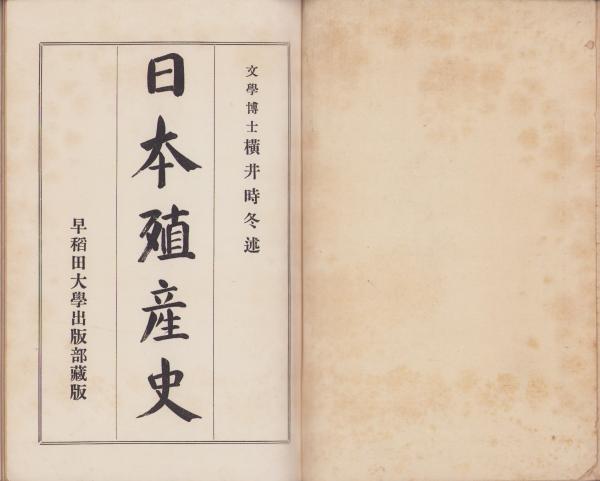 文學博士橫井時冬述
日本殖産史
早稻田大學出版部藏版